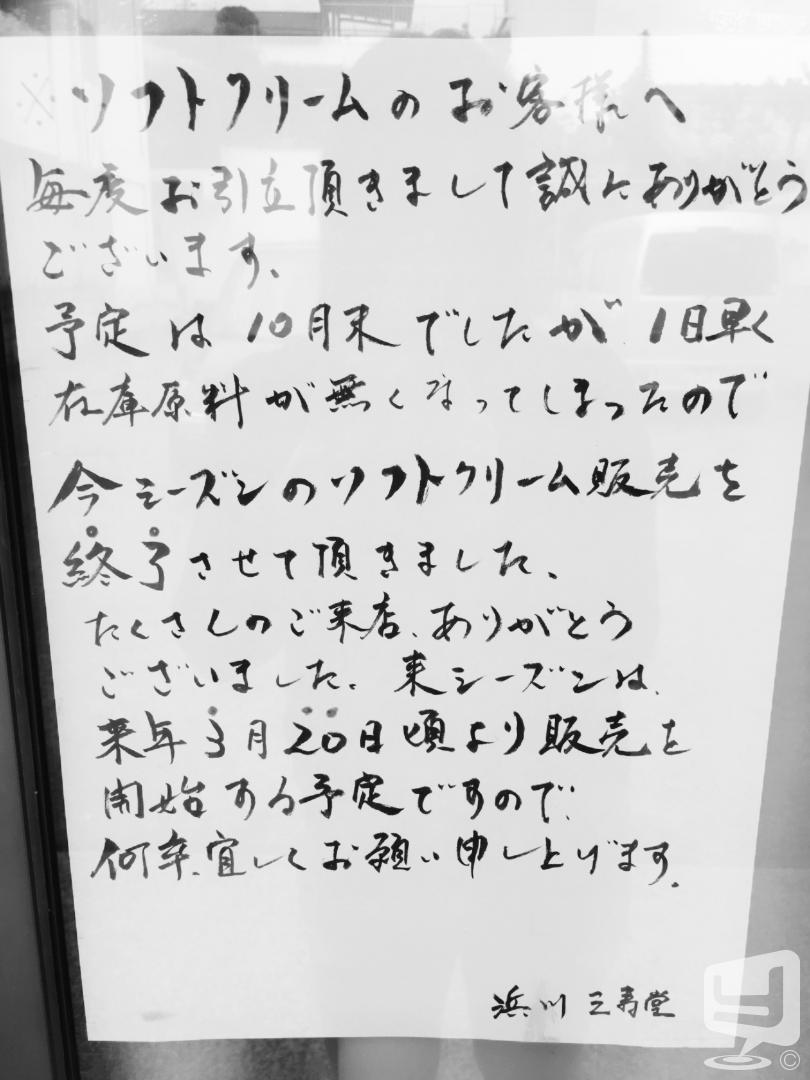 ※ソフトクリームのお客様へ
毎度お引立頂きまして誠にありがとう
ございます、
予定は10月末でしたが、1日早く
在庫原料が無くなってしまったので
今シーズンのソフトクリーム販売を
終了させて頂きました、
たくさんのご来店、ありがとう
ございました、来シーズンは、
来年3月20日頃より販売を
開始する予定ですので、
何卒、宜しくお願い申し上げます。
浜川 三寿堂